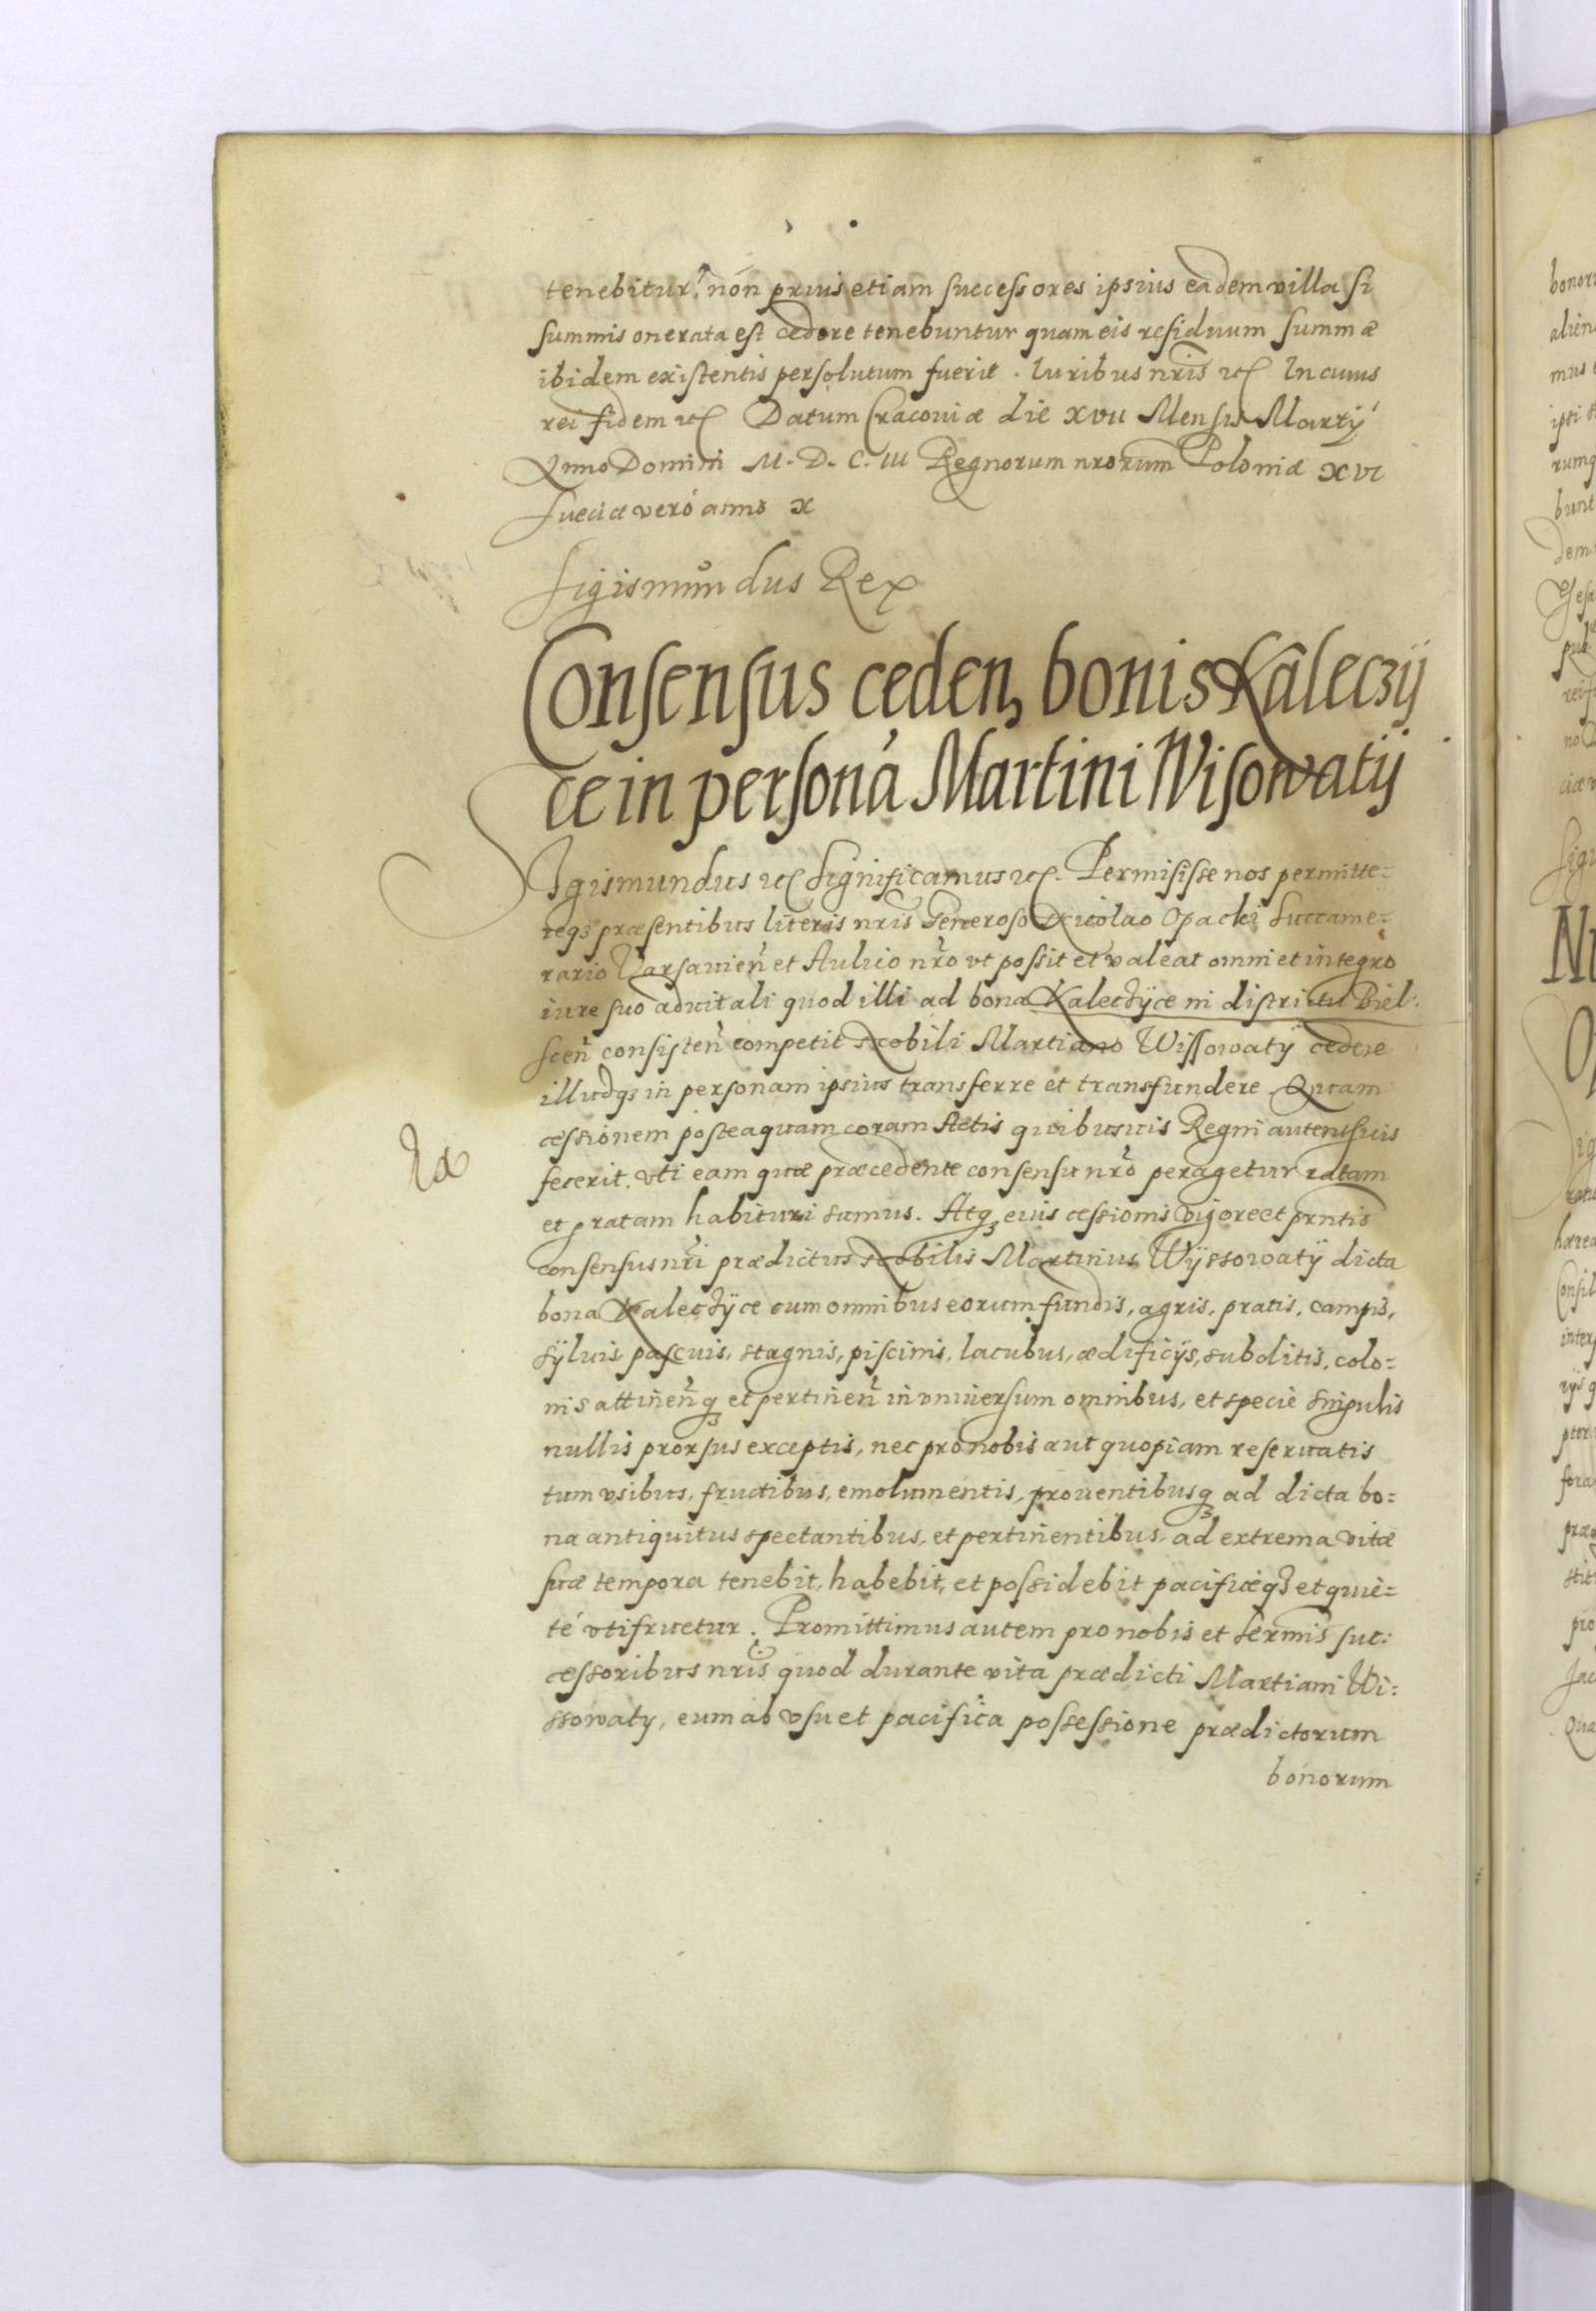 tenebitur, non prius etiam successores ipsius eadem villa si
summis onerata est cedere tenebuntur quam eis residuum summæ
ibidem existentis persolutum fuerit. Iuribus nris etc In cuius
rei fidem etc Datum Cracoviæ die XVII Mensis Martÿ
Anno Domini M. D. C. III Regnorum nrorum Poloniæ XVI
Sueciæ veró anno X
Sigismundus Rex
Consensus ceden, bonis Kaleczÿ
ce in personá Martini Wisowatÿ
Sigismundus etc Significamus etc. Permisisse nos permitte-
reqȝ præsentibus literis nris Generoso Nicolao Opacki Succame-
rario Varsavien et Aulico nro vt possit et valeat omni et integro
iure suo advitali quod illi ad bona Kaleczÿce in districtu Biel-
scen consisten competit Nobili Martiano Wissowaty cedere
illudqȝ in personam ipsius transferre et transfundere. Quam
cessionem posteaquam coram Actis quibusuis Regni autenticis
fecerit. vti eam quæ præcedente consensu nro peragetur ratam
et gratam habituri sumus. Atqȝ eius cessionis vigore et prntis
consensus nri prædictus Nobilis Martinus Wÿssowatÿ dicta
bona Kaleczÿce cum omnibus eorum fundis, agris, pratis, campis,
sÿluis pascuis, stagnis, piscinis, lacubus, ædificÿs, subditis, colo-
nis attinenqȝ et pertinen in vniuersum omnibus, et specie singulis
nullis prorsus exceptis, nec pro nobis aut quopiam reseruatis
tum vsibus, fructibus, emolumentis, prouentibusqȝ ad dicta bo-
na antiquitus spectantibus, et pertinentibus, ad extrema vitæ
suæ tempora tenebit, habebit, et possidebit pacificeqȝ et quie-
té vtifruetur. Promittimus autem pro nobis et Sermis suc-
cessoribus nris quod durante vita prædicti Martiani Wi-
ssowaty, eum ab vsu et pacifica possessione prædictorum
bonorum